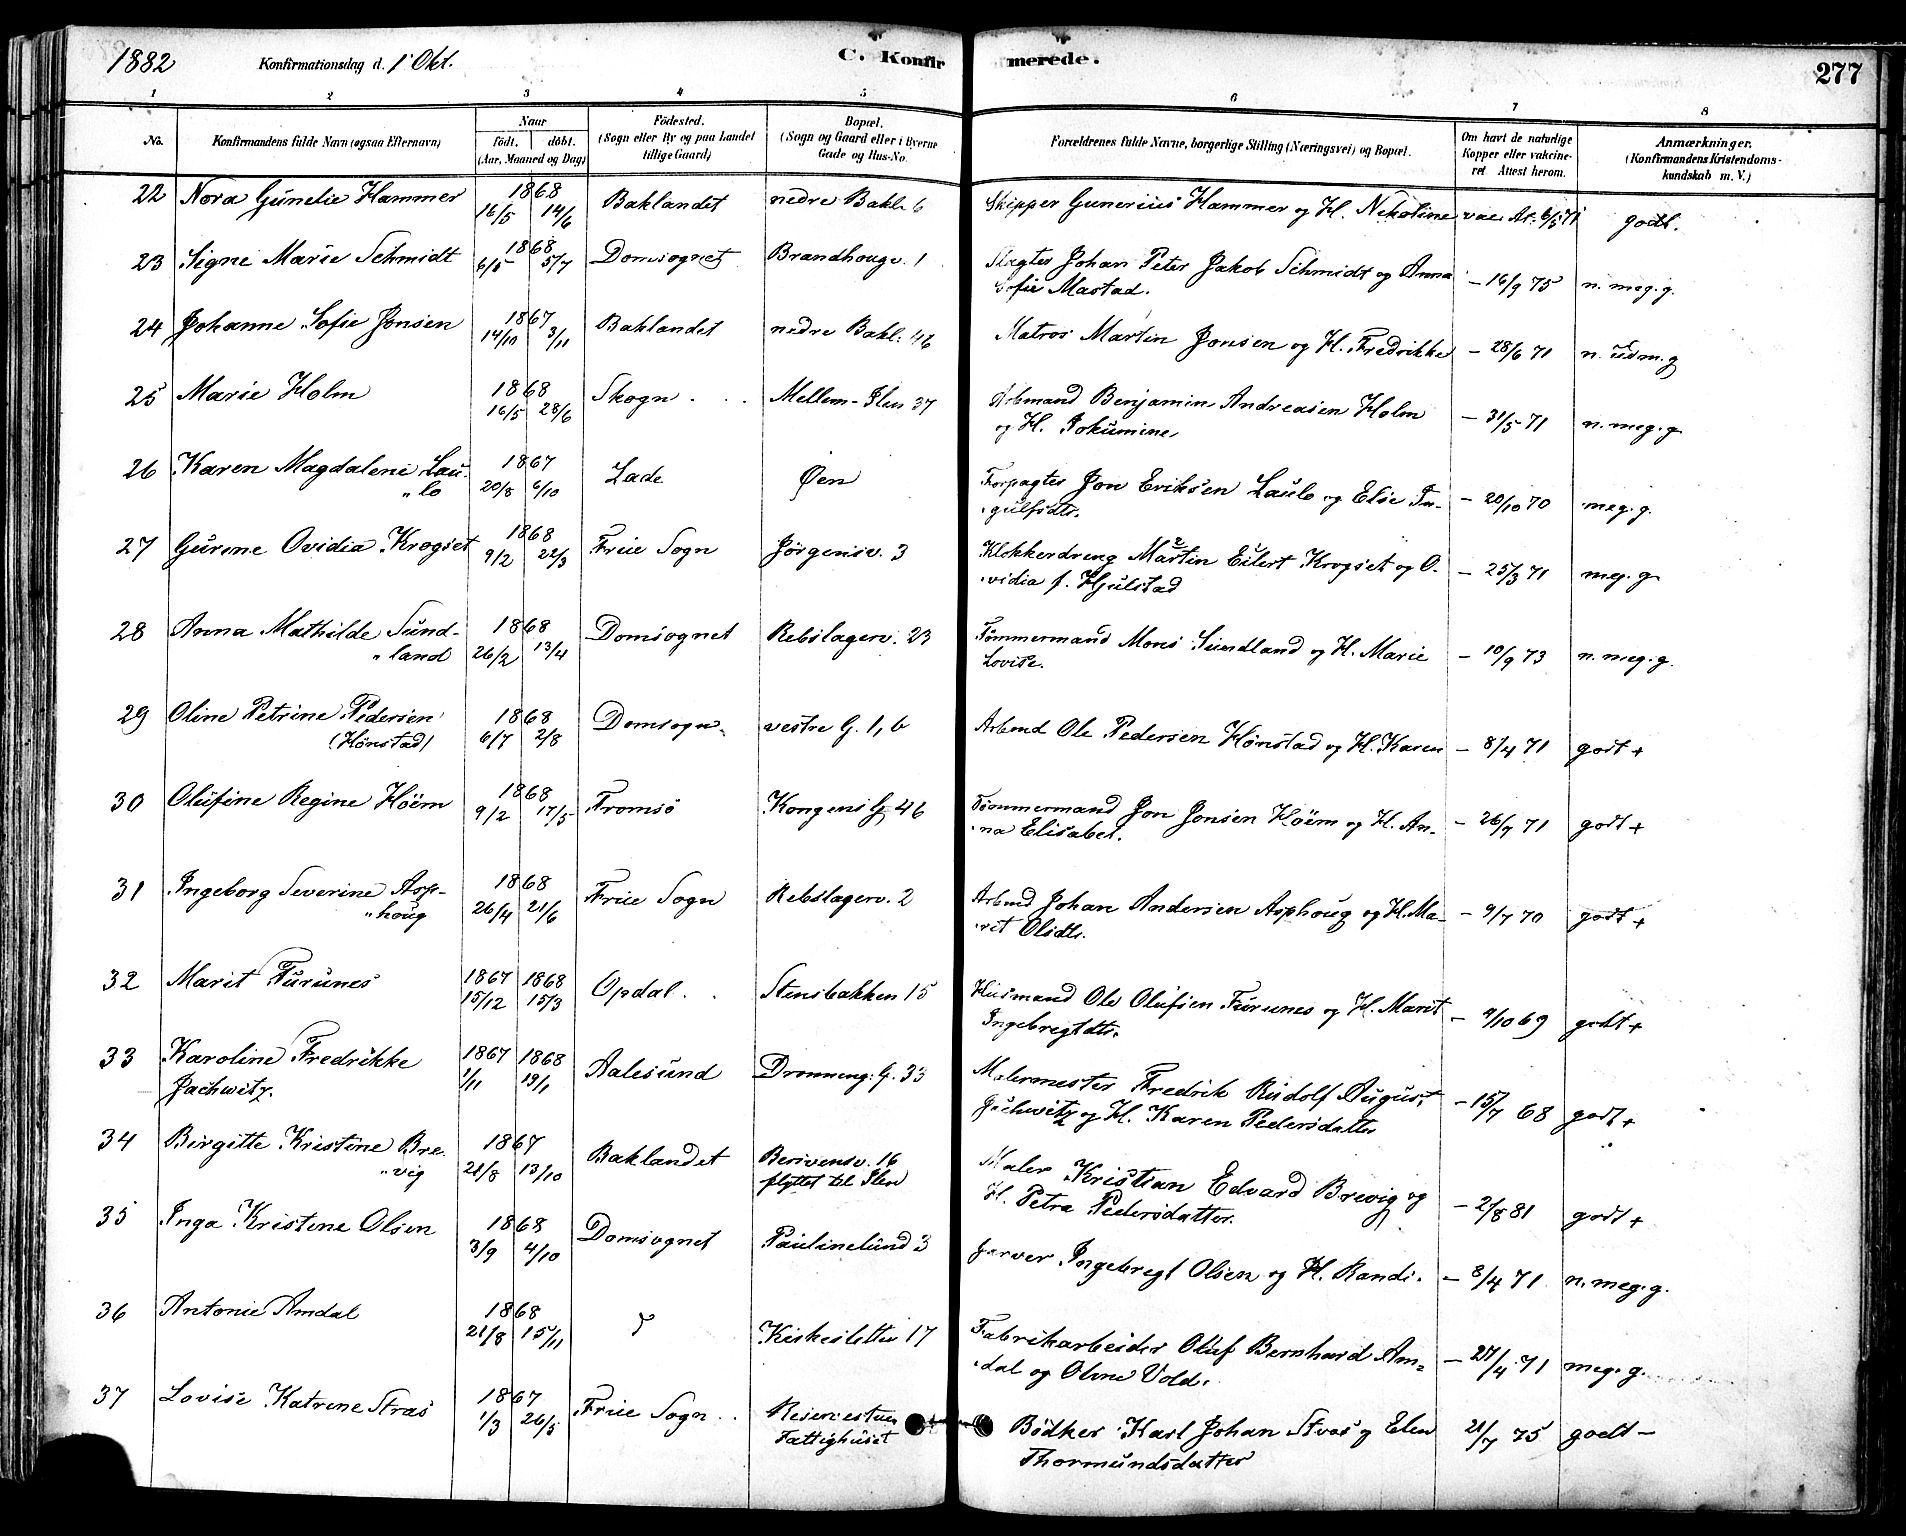 1882 Konfirmationsdag d. 1' Okt. C. Konfirmerede. 277
1 2 3 4 5 6 7 8
No. Konfirmandens fulde Navn (ogsaa Efternavn) Naar født. døbt. (Aar, Maaned og Dag) Fødested. (Sogn eller By og paa Landet tillige Gaard) Bopæl. (Sogn og Gaard eller i Byerne Gade og Hus-No. Forældrenes fulde Navne, borgerlige Stilling (Næringsvei) og Bopæl. Om havt de naturlige Kopper eller vakcineret Attest herom. Anmærkninger. (Konfirmandens Kristendomskundskab m. V.)
22 Nora Gunelie Hammer 1868 16/5 14/6 Baklandet nedre Bakl. 6 Skipper Gunerius Hammer og H. Nekoline vac. At. 6/5 71 godt.
23 Signe Marie Schmidt 1868 6/5 5/7 Domsognet Brandhougv. 1 Slagter Johan Peter Jakob Schmidt og Anna
Sofie Mastad. – 16/9 75 n. meg. g.
24 Johanne Sofie Jonsen 1867 14/10 3/11 Baklandet nedre Bakl. 46 Matros Martin Jonsen og H. Fredrikke – 28/6 71 n. udm. g
25 Marie Holm 1868 16/5 28/6 Skogn Mellem-Ilen 37 Arbmand Benjamin Andreasen Holm
og H. Jokumine – 31/5 71 n. meg. g
26 Karen Magdalene Lau-
"lo 1867 20/8 6/10 Lade Øen Forpagter Jon Eriksen Laulo og Else In-
gulfsdtr. – 20/10 70 meg. g.
27 Gurine Ovidia Krogset 1868 9/2 22/3 Frue Sogn Jørgensv. 3 Klokkerdreng Martin Eilert Krogset og O-
vidia f. Hjulstad – 25/3 71 meg. g
28 Anna Mathilde Sund-
"land 1868 26/2 13/4 Domsognet Rebslagerv. 23 Tømmermand Mons Sundland og H. Marie
Lovise. – 10/9 73 n. meg. g.
29 Oline Petrine Pedersen
(Hønstad) 1868 6/7 2/8 Domsogn. vestre G. 1, 6 Arbmd Ole Pedersen Hønstad og H. Karen – 8/4 71 godt +
30 Olufine Regine Höem 1868 9/2 17/5 Tromsö Kongens G. 46 Tömmermand Jon Jonsen Höem og H. An-
na Elisabet. – 26/7 71 godt +
31 Ingeborg Severine Asp-
"houg 1868 26/4 21/6 Frue Sogn Rebslagerv. 2 Arbmd Johan Andersen Asphoug og H. Ma-
rit Olsdtr. – 9/7 70 godt +
32 Marit Furunes 1867 15/12 1868 15/3 Opdal Stensbakken 15 Husmand Ole Olufsen Furunes og H. Marit
Ingebregtdtr. – 9/10 69 godt +
33 Karoline Fredrikke
Jachwitz. 1867 1/11 1868 19/1 Aalesund Dronneng. G. 33 Malermester Fredrik Rudolf August
Jachwitz og H. Karen Pedersdatter – 15/7 68 godt +
34 Birgitte Kristine Bre-
"vig 1867 21/8 13/10 Baklandet Berivensv. 16
flyttet til Ilen Maler Kristian Edvard Brevig og
H. Petra Pedersdatter. – 2/8 81 godt +
35 Inga Kristene Olsen 1868 3/9 4/10 Domsognet Paulinelund 3 Garver Ingebregt Olsen og H. Randi. – 8/4 71 n. meg. g.
36 Antonie Amdal 1868 21/8 15/11 Kirkesletten 17 Fabrikarbeider Oluf Bernhard Am-
dal og Oline Vold. – 27/4 71 meg. g.
37 Lovise Katrine Stras 1867 1/3 26/5 Frue Sogn
Fattighuset Bødker Karl Johan Stras og Elen
Thormundsdatter 21/7 75 godt –